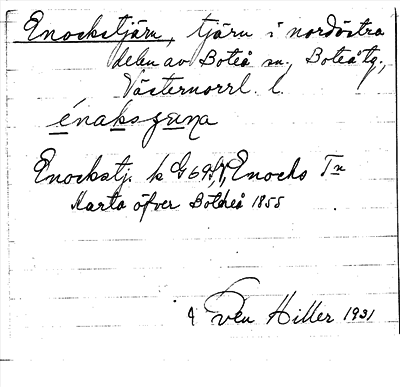 Enockstjärn, tjärn i nordöstra
delen av Boteå sn, Boteå tg,
Västernorrl. l.
Enockstj. k G 69 Enocks Tn
Karta öfver Boteå 1855
Sven Hiller 1931